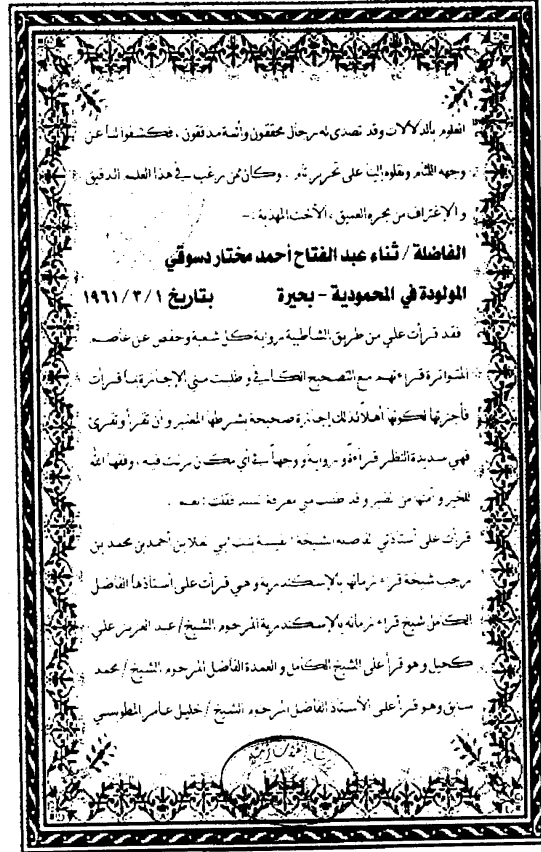 العلوم بالدلالات وقد تصدى له رجال محققون وأئمة مدققون ، فكشفوا لنا عن
وجهه اللثام ونقلوه إلينا على تحرير تام . وكان ممن رغب في هذا العلم الدقيق
والإغتراف من بحره العميق ، الأخت المهذبة :-
الفاضلة / ثناء عبد الفتاح أحمد مختار دسوقي
المولودة في المحمودية - بحيرة بتاريخ ١ / ٣ / ١٩٦١
فقد قرأت علي من طريق الشاطبية برواية كل شعبة وحفص عن عاصم
المتواترة قراءتهم مع التصحيح الكافي وطلبت مني الإجازة بما قرأت
فأجزتها لكونها أهلاً لذلك إجازة صحيحة بشرطها المعتبر وأن تقرأ وتقرئ
فهي سديدة النظر قراءةً ورواية ووجهاً في أي مكان نزلت فيه ، وفقها الله
للخير وأمنها من الضير وقد طلبت مني معرفة السند فقلت : نعم .
قرأت على أستاذتي الفاضلة الشيخة نفيسة بنت أبي العلا بن أحمد بن محمد بن
رجب شيخة قراء زمانها بالإسكندرية وهي قرأت على أستاذها الفاضل
الكامل شيخ قراء زمانه بالإسكندرية المرحوم الشيخ / عبد العزيز علي
كحيل وهو قرأ على الشيخ الكامل والعمدة الفاضل المرحوم الشيخ / محمد
سابق وهو قرأ على الأستاذ الفاضل المرحوم الشيخ / خليل عامر المطوبسي